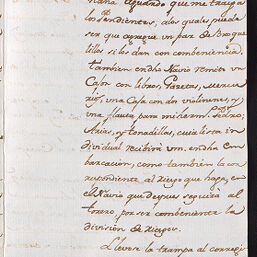 Aguardo que me traiga
los Pendientes, a los quales puede
ser que agregue un par de Braque
lillos si los dan con combeniencia:
tambien en dho Navio remito un
Cajon con libros, Pasetas, Mercu
rios, una Caja con dos violenunes, y
una flauta para mi herm.º Pedro;
Arias, y tonadillas, cuia lista in
dividual recibirá vm. en dha em
barcacion, como tambien la cor
respondiente al riesgo que haga, en
el Navio que despues seguirá al
torero, por ser combeniente la
division de riesgos.
Lleverse la trampa al corregi